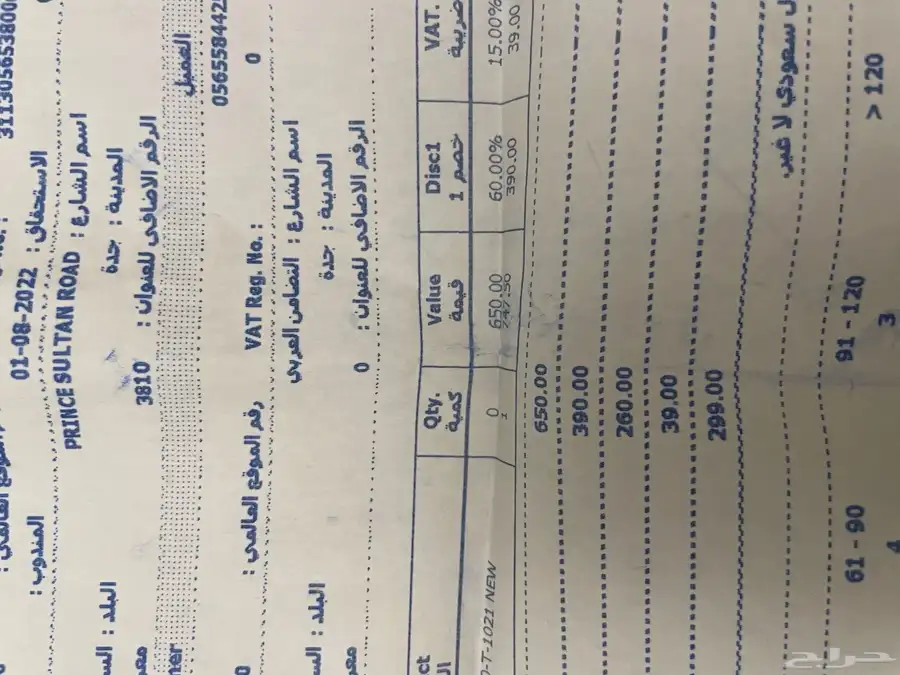 311305653800
01-08-2022 الاستحقاق :
المندوب :
PRINCE SULTAN ROAD اسم الشارع :
المدينة : جدة
البلد :
3810 الرقم الاضافي للعنوان :
العميل
056558442
0
VAT Reg. No. :
رقم الموقع العالمى :
اسم الشارع : التضامن العربي
المدينة : جدة
البلد :
0 الرقم الاضافي للعنوان :
Qty. Value Disc1 VAT.
كمية قيمة خصم 1 ضريبة
T-1021 NEW 0 650.00 60.00% 15.00%
1 747.50 390.00 39.00
650.00
390.00
260.00
39.00
299.00
سعودي لا غير
61 - 90 91 - 120 > 120
4 3
حراج